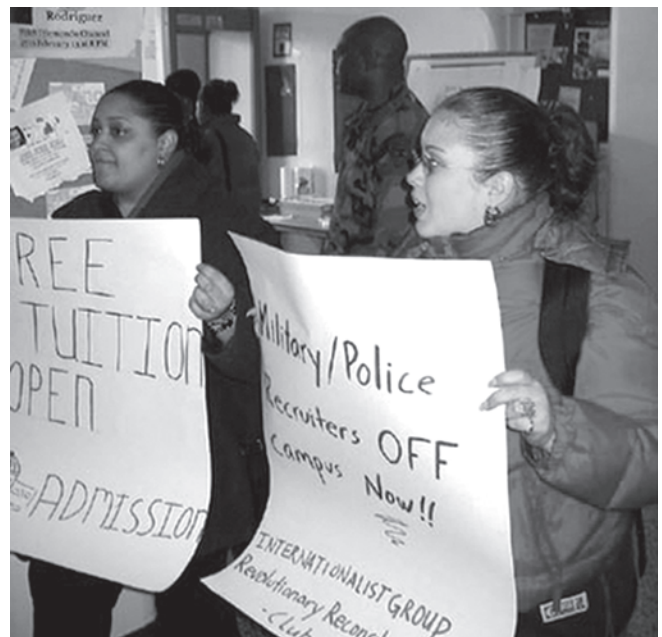 Rodriguez
REE
TUITION
OPEN
ADMISSION
Military/Police
Recruiters OFF
Campus Now!!
INTERNATIONALIST GROUP
Revolutionary Recon
- Club